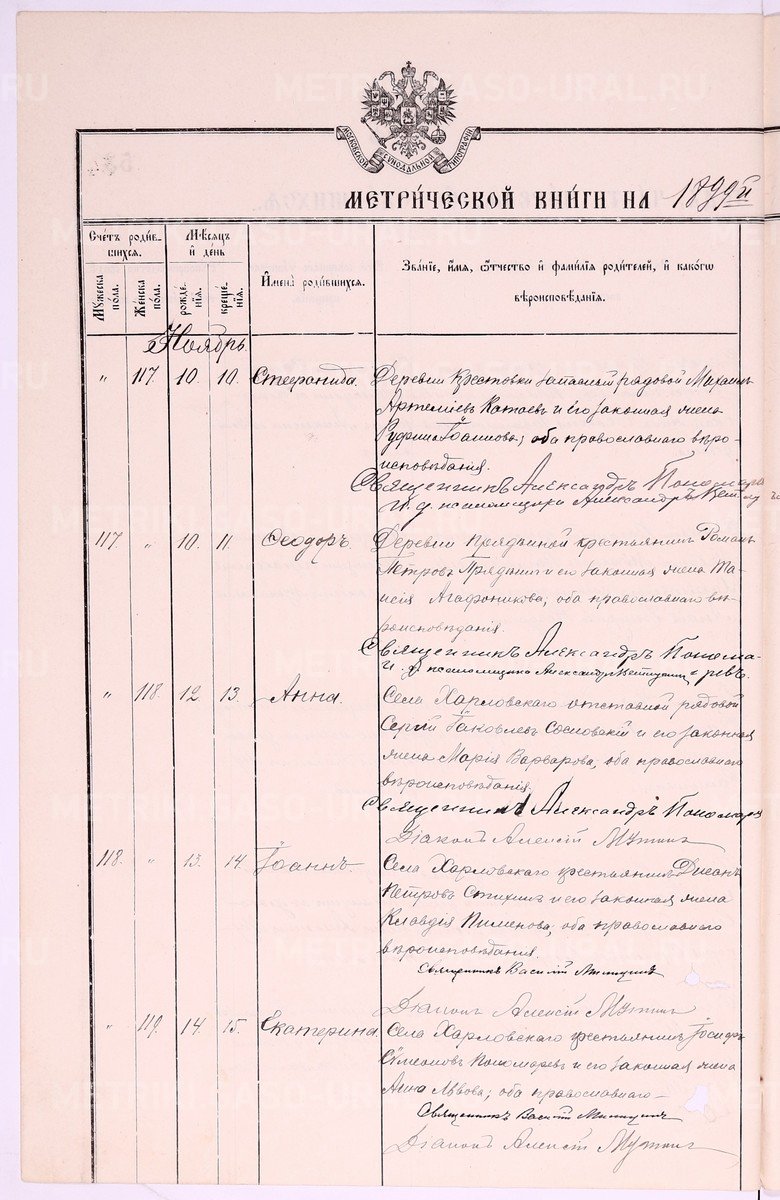 МОСКОВСКОЙ СѴНОДАЛЬНОЙ ТИПОГРАФІИ
МЕТРИ́ЧЕСКОЙ КНИ́ГИ НА 1899й
Сче́тъ роди́вшихсѧ.
Мꙋ́жеска по́ла.
Же́нска по́ла.
Мѣ́сѧцъ и҆ де́нь
рожде́нїѧ.
креще́нїѧ.
И҆мена̀ роди́вшихсѧ.
Зва́нїе, и҆́мѧ, ѻ҆́тчество и҆ фами́лїѧ роди́телей, и҆ како́гѡ
вѣроисповѣ́данїѧ.
Ноябрь.
" 117. 10. 10. Стефанида. Деревни Крестовки запасный рядовой Михаилъ
Артемиевъ Катаевъ и его законная жена
Руфина Іоаннова; оба православнаго вѣро-
исповѣданія.
Священникъ Александръ Пономарев
И. д. псаломщика Александръ
117. " 10. 11. Ѳеодоръ. Деревни Прядьиной крестьянинъ Романъ
Петровъ Прядьинъ и его законная жена Та-
исія Агафоникова; оба православнаго вѣ-
роисповѣданія.
Священникъ Александръ Понома-
ревъ.
И. д. псаломщика Александръ
" 118. 12. 13. Анна. Села Харловскаго отставной рядовой
Сергій Іаковлевъ Сосновскій и его законная
жена Марія Варварова, оба православнаго
вѣроисповѣданія.
Священникъ Александръ Пономарев
Діаконъ Алексій
118. " 13. 14. Іоаннъ. Села Харловскаго крестьянинъ
Петровъ Стихинъ и его законная жена
Клавдія Пименова; оба православнаго
вѣроисповѣданія.
Священникъ Василій
Діаконъ Алексій
" 119. 14. 15. Екатерина. Села Харловскаго крестьянинъ Іосифъ
Сѵмеоновъ Пономаревъ и его законная жена
Анна Львова; оба православнаго
Священникъ Василій
Діаконъ Алексій